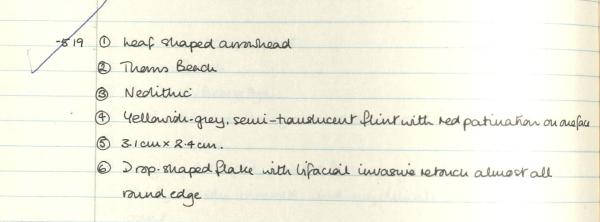 -519 ① Leaf shaped arrowhead
② Thorns Beach
③ Neolithic
④ Yellowish-grey, semi-translucent flint with red patination on one face
⑤ 3.1cm x 2.4cm.
⑥ Drop-shaped flake with bifacial invasive retouch almost all
round edge